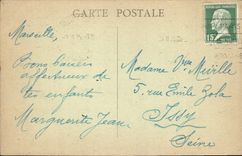 CARTE POSTALE
Marseille,
Bons baisers
affectueux de
tes enfants
Marguerite Jean
Madame Vve Miville
5, rue Emile Zola
Issy
Seine
15